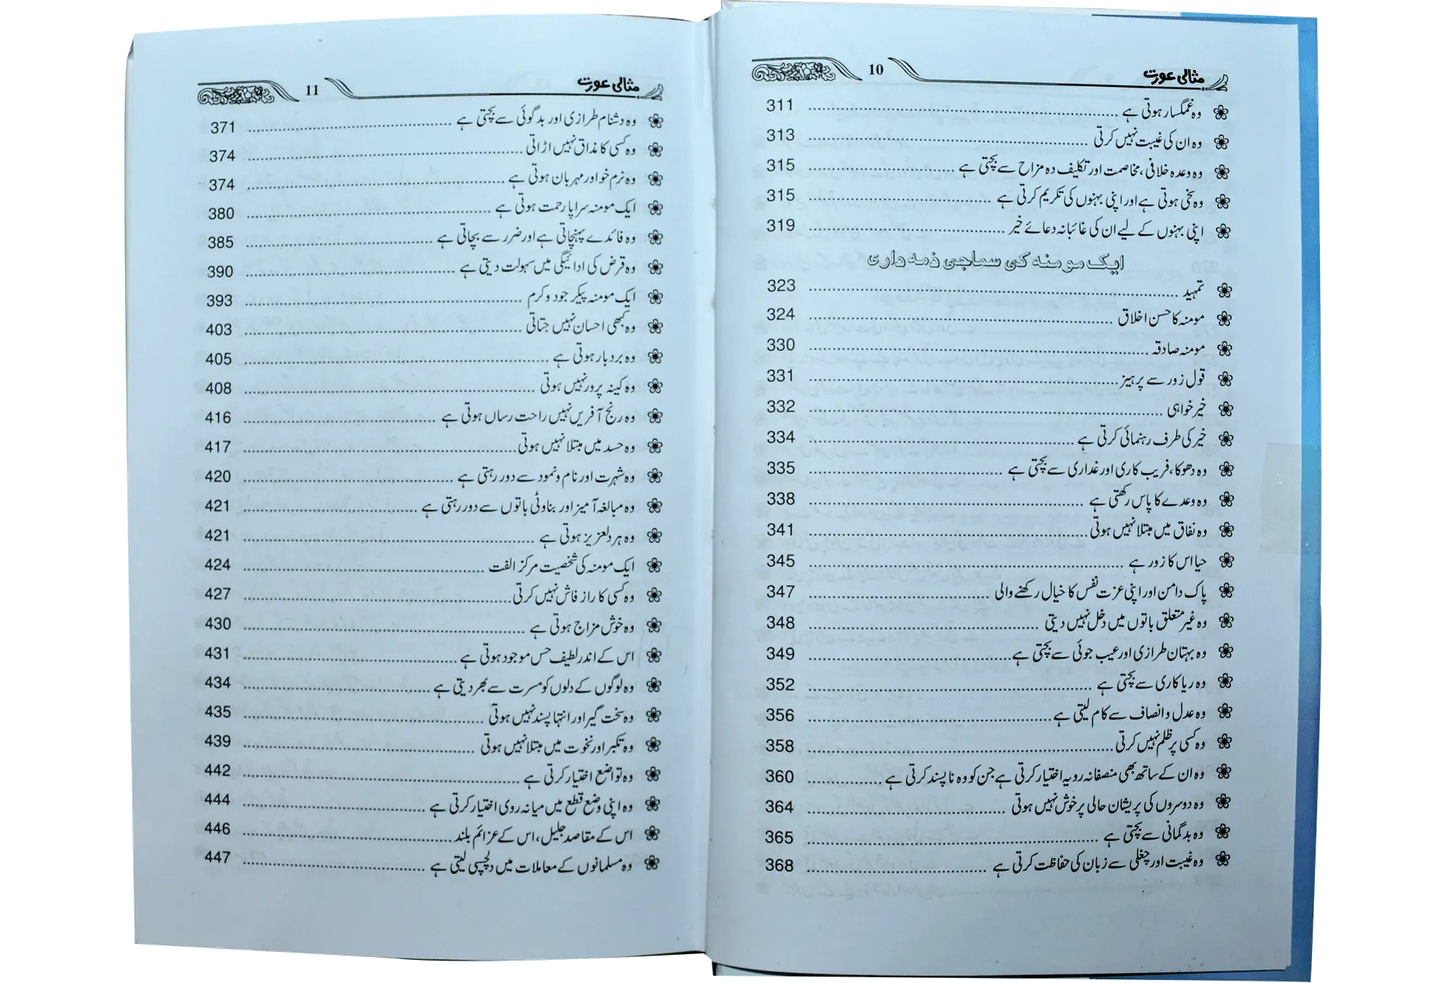 مثالی عورت 10
وہ غمگسار ہوتی ہے ........ 311
وہ ان کی غیبت نہیں کرتی ........ 313
وہ وعدہ خلافی، مخاصمت اور تکلیف دہ مزاح سے بچتی ہے ........ 315
وہ سخی ہوتی ہے اور اپنی بہنوں کی تکریم کرتی ہے ........ 315
اپنی بہنوں کے لیے ان کی غائبانہ دعائے خیر ........ 319
ایک مومنہ کی سماجی ذمہ داری
تمہید ........ 323
مومنہ کا حسن اخلاق ........ 324
مومنہ صادقہ ........ 330
قول زور سے پرہیز ........ 331
خیر خواہی ........ 332
خیر کی طرف رہنمائی کرتی ہے ........ 334
وہ دھوکا، فریب کاری اور غداری سے بچتی ہے ........ 335
وہ وعدے کا پاس رکھتی ہے ........ 338
وہ نفاق میں مبتلا نہیں ہوتی ........ 341
حیا اس کا زور ہے ........ 345
پاک دامن اور اپنی عزت نفس کا خیال رکھنے والی ........ 347
وہ غیر متعلق باتوں میں دخل نہیں دیتی ........ 348
وہ بہتان طرازی اور عیب جوئی سے بچتی ہے ........ 349
وہ ریا کاری سے بچتی ہے ........ 352
وہ عدل و انصاف سے کام لیتی ہے ........ 356
وہ کسی پر ظلم نہیں کرتی ........ 358
وہ ان کے ساتھ بھی منصفانہ رویہ اختیار کرتی ہے جن کو وہ نا پسند کرتی ہے ........ 360
وہ دوسروں کی پریشان حالی پر خوش نہیں ہوتی ........ 364
وہ بدگمانی سے بچتی ہے ........ 365
وہ غیبت اور چغلی سے زبان کی حفاظت کرتی ہے ........ 368
مثالی عورت 11
وہ دشنام طرازی اور بد گوئی سے بچتی ہے ........ 371
وہ کسی کا مذاق نہیں اڑاتی ........ 374
وہ نرم خو اور مہربان ہوتی ہے ........ 374
ایک مومنہ سراپا رحمت ہوتی ہے ........ 380
وہ فائدے پہنچاتی ہے اور ضرر سے بچاتی ہے ........ 385
وہ قرض کی ادائیگی میں سہولت دیتی ہے ........ 390
ایک مومنہ پیکر جود و کرم ........ 393
وہ کبھی احسان نہیں جتاتی ........ 403
وہ بردبار ہوتی ہے ........ 405
وہ کینہ پرور نہیں ہوتی ........ 408
وہ رنج آفریں نہیں راحت رساں ہوتی ہے ........ 416
وہ حسد میں مبتلا نہیں ہوتی ........ 417
وہ شہرت اور نام و نمود سے دور رہتی ہے ........ 420
وہ مبالغہ آمیز اور بناوٹی باتوں سے دور رہتی ہے ........ 421
وہ ہر دلعزیز ہوتی ہے ........ 421
ایک مومنہ کی شخصیت مرکز الفت ........ 424
وہ کسی کا راز فاش نہیں کرتی ........ 427
وہ خوش مزاج ہوتی ہے ........ 430
اس کے اندر لطیف حس موجود ہوتی ہے ........ 431
وہ لوگوں کے دلوں کو مسرت سے بھر دیتی ہے ........ 434
وہ سخت گیر اور انتہا پسند نہیں ہوتی ........ 435
وہ تکبر اور نخوت میں مبتلا نہیں ہوتی ........ 439
وہ تواضع اختیار کرتی ہے ........ 442
وہ اپنی وضع قطع میں میانہ روی اختیار کرتی ہے ........ 444
اس کے مقاصد جلیل، اس کے عزائم بلند ........ 446
وہ مسلمانوں کے معاملات میں دلچسپی لیتی ہے ........ 447